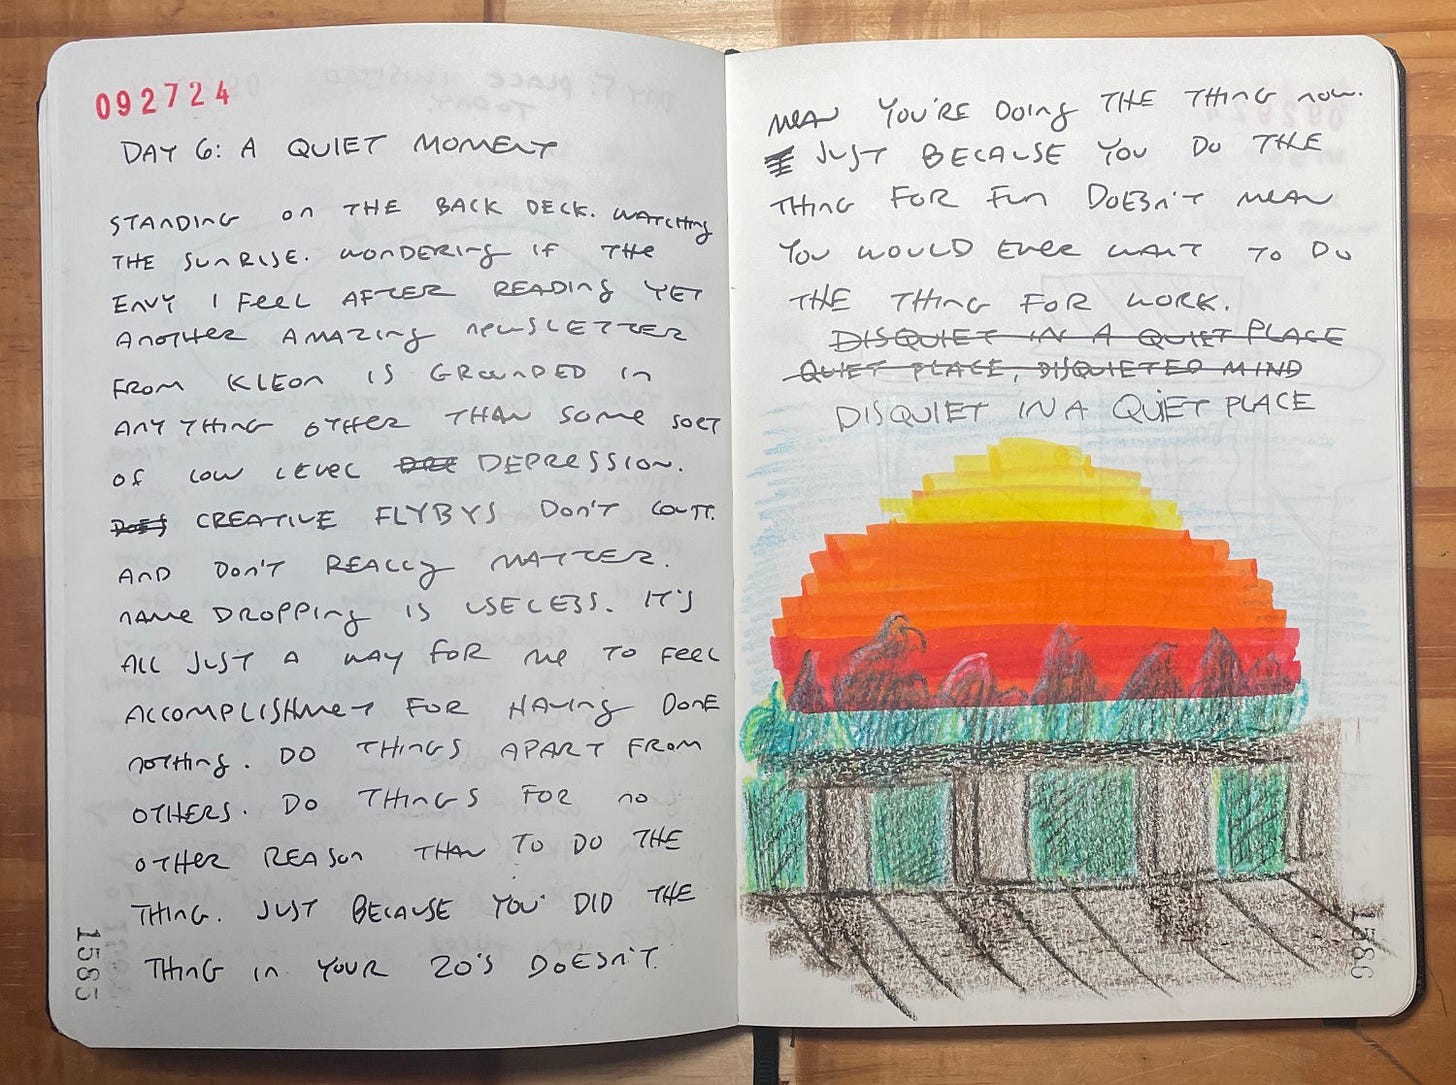 092724
DAY 6: A QUIET MOMENT
STANDING ON THE BACK DECK. WATCHING
THE SUNRISE. WONDERING IF THE
ENVY I FEEL AFTER READING YET
ANOTHER AMAZING NEWSLETTER
FROM KLEON IS GROUNDED IN
ANYTHING OTHER THAN SOME SORT
OF LOW LEVEL DEPRESSION.
DOES CREATIVE FLYBYS DON'T COUNT.
AND DON'T REALLY MATTER.
NAME DROPPING IS USELESS. IT'S
ALL JUST A WAY FOR ME TO FEEL
ACCOMPLISHMENT FOR HAVING DONE
NOTHING. DO THINGS APART FROM
OTHERS. DO THINGS FOR NO
OTHER REASON THAN TO DO THE
THING. JUST BECAUSE YOU DID THE
THING IN YOUR 20'S DOESN'T
1585
MEAN YOU'RE DOING THE THING NOW.
JUST BECAUSE YOU DO THE
THING FOR FUN DOESN'T MEAN
YOU WOULD EVER WANT TO DO
THE THING FOR WORK.
DISQUIET IN A QUIET PLACE
QUIET PLACE, DISQUIETED MIND
DISQUIET IN A QUIET PLACE
1586